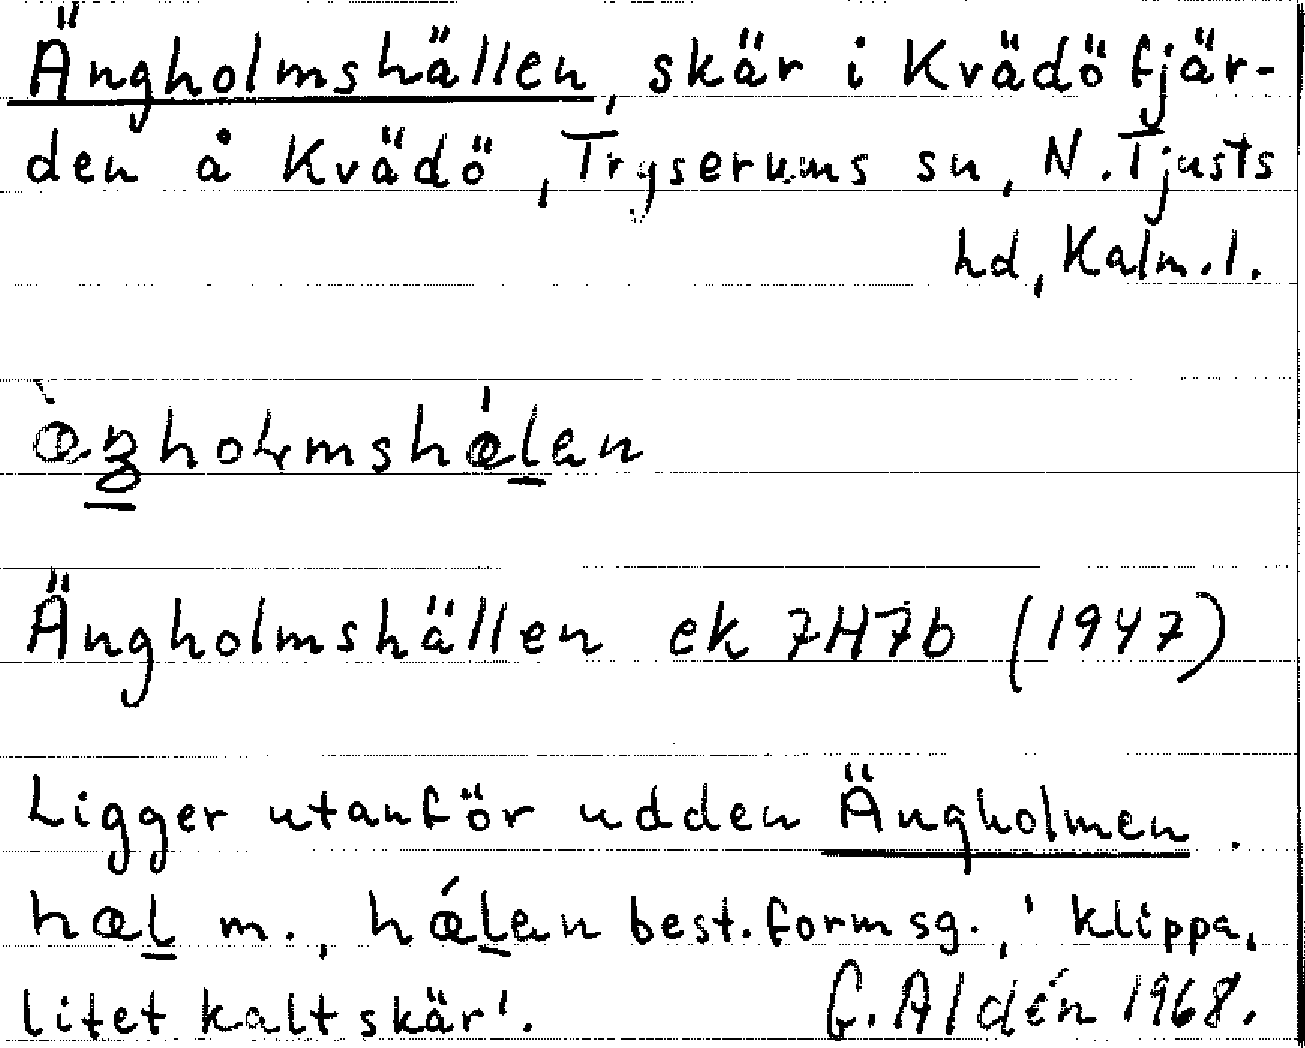 Ängholmshällen, skär i Kvädöfjär-
den å Kvädö, Tryserums sn, N. Tjusts
hd, Kalm. l.
Ängholmshällen ek 7H7b (1947)
Ligger utanför udden Ängholmen.
hæl m., hǽlen best. form sg., 'klippa,
litet kalt skär'. G. Aldén 1968.